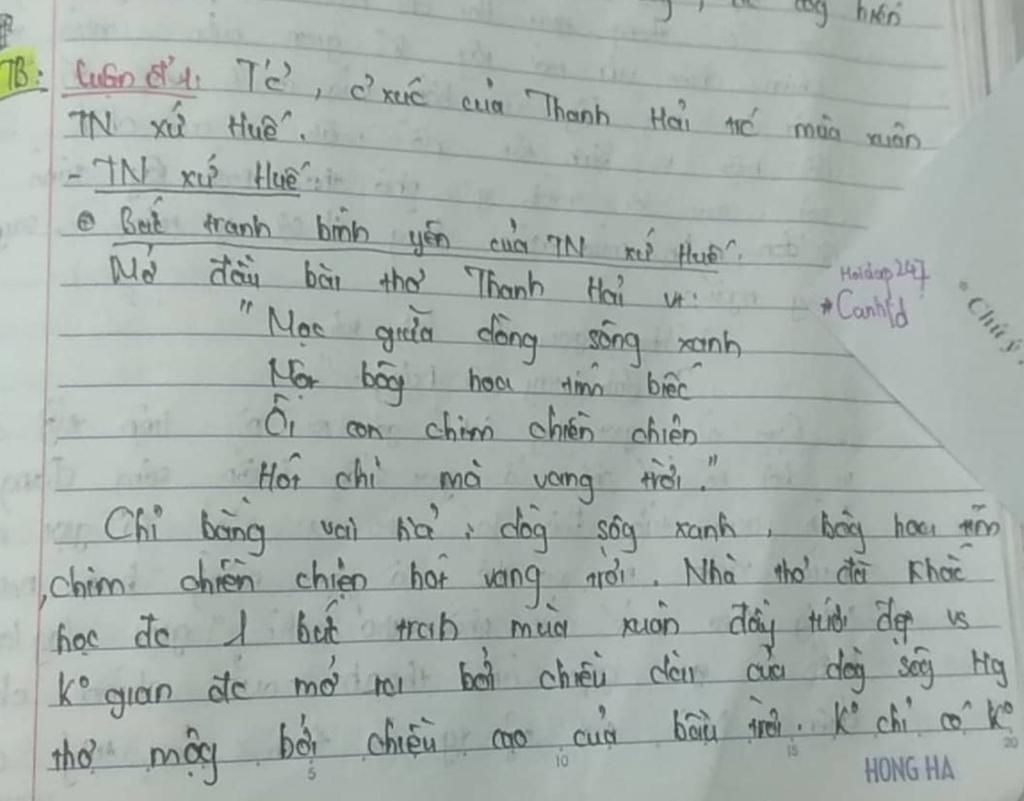 hiện
TB: Luận đ' 1: T/c', c' xúc của Thanh Hải trc' mùa xuân
TN xứ Huế.
- TN xứ Huế:
Bức tranh bình yên của TN xứ Huế.
Mở đầu bài thơ Thanh Hải vt:
"Mọc giữa dòng sông xanh
Một bôg hoa tím biếc
Ôi con chim chiền chiện
Hót chi mà vang trời."
Hoidap247
*Canhld
* Chú ý
Chỉ bằng vài h/a': dòg sôg xanh, bôg hoa tím
, chim chiền chiện hót vang trời. Nhà thơ đã khắc
học đc 1 bức trah mùa xuân đầy tươi đẹp vs
k° gian đc mở ra bởi chiều dài của dòg sôg Hg
thơ mộg bởi chiều cao của bầu trời. K° chỉ có k°
5 10 15 20
HONG HA